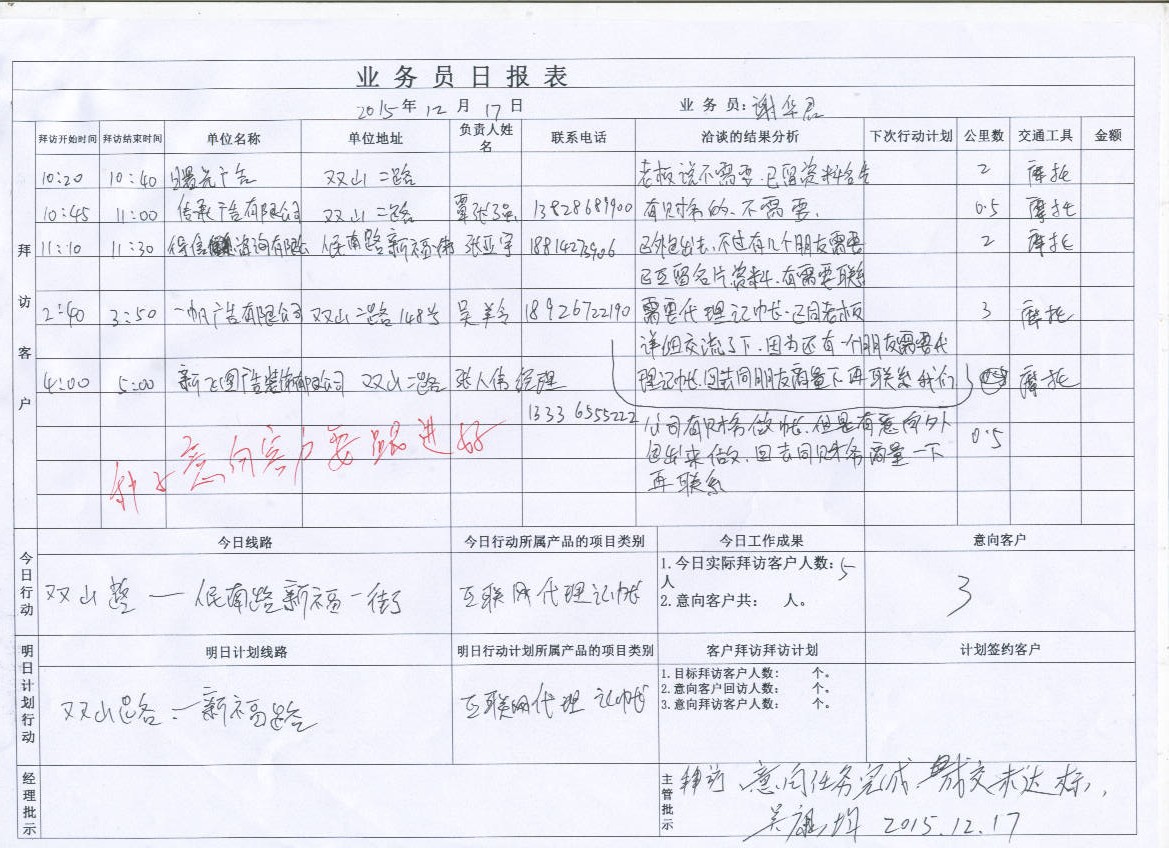 业务员日报表
2015年12月17日 业务员:谢华君
拜访开始时间 拜访结束时间 单位名称 单位地址 负责人姓名 联系电话 洽谈的结果分析 下次行动计划 公里数 交通工具 金额
拜访客户
10:20 10:40 曙光广告 双山二路 老板说不需要.已留资料名片 2 摩托
10:45 11:00 传承广告有限公司 双山二路 13828689900 有财务的.不需要. 0.5 摩托
11:10 11:30 咨询有限 人民南路新福一街 张亚宇 18814273906 已外包出去.不过有几个朋友需要 2 摩托
已互留名片资料.有需要联系
2:40 3:50 一帆广告有限公司 双山二路148号 吴美令 18926722190 需要代理记帐.已同老板 3 摩托
详细交流了下.因为还有一个朋友需要代
4:00 5:00 新飞图广告装饰有限公司 双山二路 张人伟经理 理记帐.回去同朋友商量下再联系我们 摩托
13336555222 公司有财务做帐.但是有意向外
包出来做.回去同财务商量一下 0.5
再联系
意向客户要跟进好
今日行动
今日线路 今日行动所属产品的项目类别 今日工作成果 意向客户
双山路 — 人民南路新福一街 互联网代理记帐 1.今日实际拜访客户人数:5人 3
2.意向客户共: 人。
明日计划行动
明日计划线路 明日行动计划所属产品的项目类别 客户拜访拜访计划 计划签约客户
双山路 — 新福路 互联网代理记帐 1.目标拜访客户人数: 个。
2.意向客户回访人数: 个。
3.意向拜访客户人数: 个。
经理批示
主管批示 拜访、意向任务完成 成交未达标,
2015.12.17